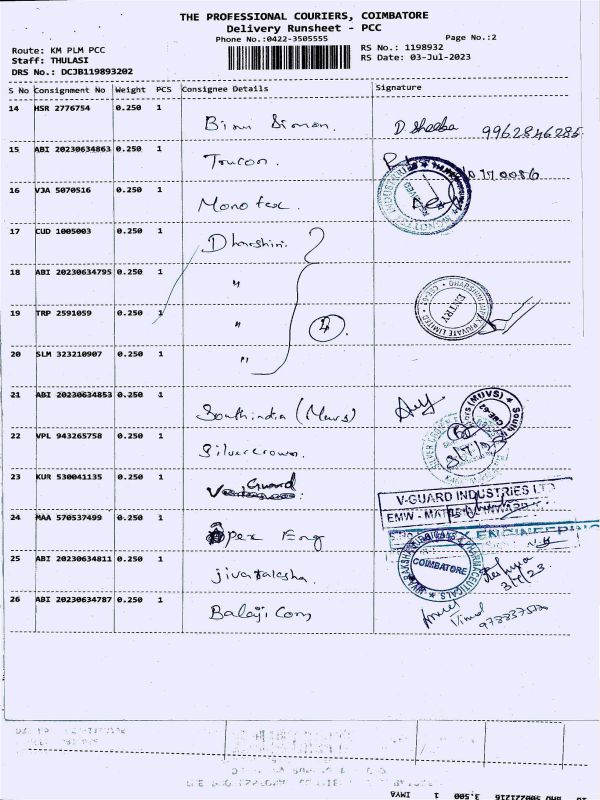 THE PROFESSIONAL COURIERS, COIMBATORE
Delivery Runsheet - PCC
Phone No.:0422-3505555
Page No.:2
Route: KM PLM PCC
RS No.: 1198932
Staff: THULASI
RS Date: 03-Jul-2023
DRS No.: DCJB119893202
S No Consignment No Weight PCS Consignee Details Signature
14 HSR 2776754 0.250 1 D Sheeba 9962846285
15 ABI 20230634863 0.250 1
16 VJA 5070516 0.250 1 Monotex.
17 CUD 1005003 0.250 1 Dharshini.
18 ABI 20230634795 0.250 1 "
19 TRP 2591059 0.250 1 " 4.
ENTRY
20 SLM 323210907 0.250 1 "
21 ABI 20230634853 0.250 1 Southindia (Muvs)
22 VPL 943265758 0.250 1 Silvercrown.
23 KUR 530041135 0.250 1 V Guard
V-GUARD INDUSTRIES LTD
24 MAA 570537499 0.250 1 Apex Eng
ENGINEERING
25 ABI 20230634811 0.250 1 jivarakasha.
COIMBATORE
3/7/23
26 ABI 20230634787 0.250 1 Balaji Com
Vimal